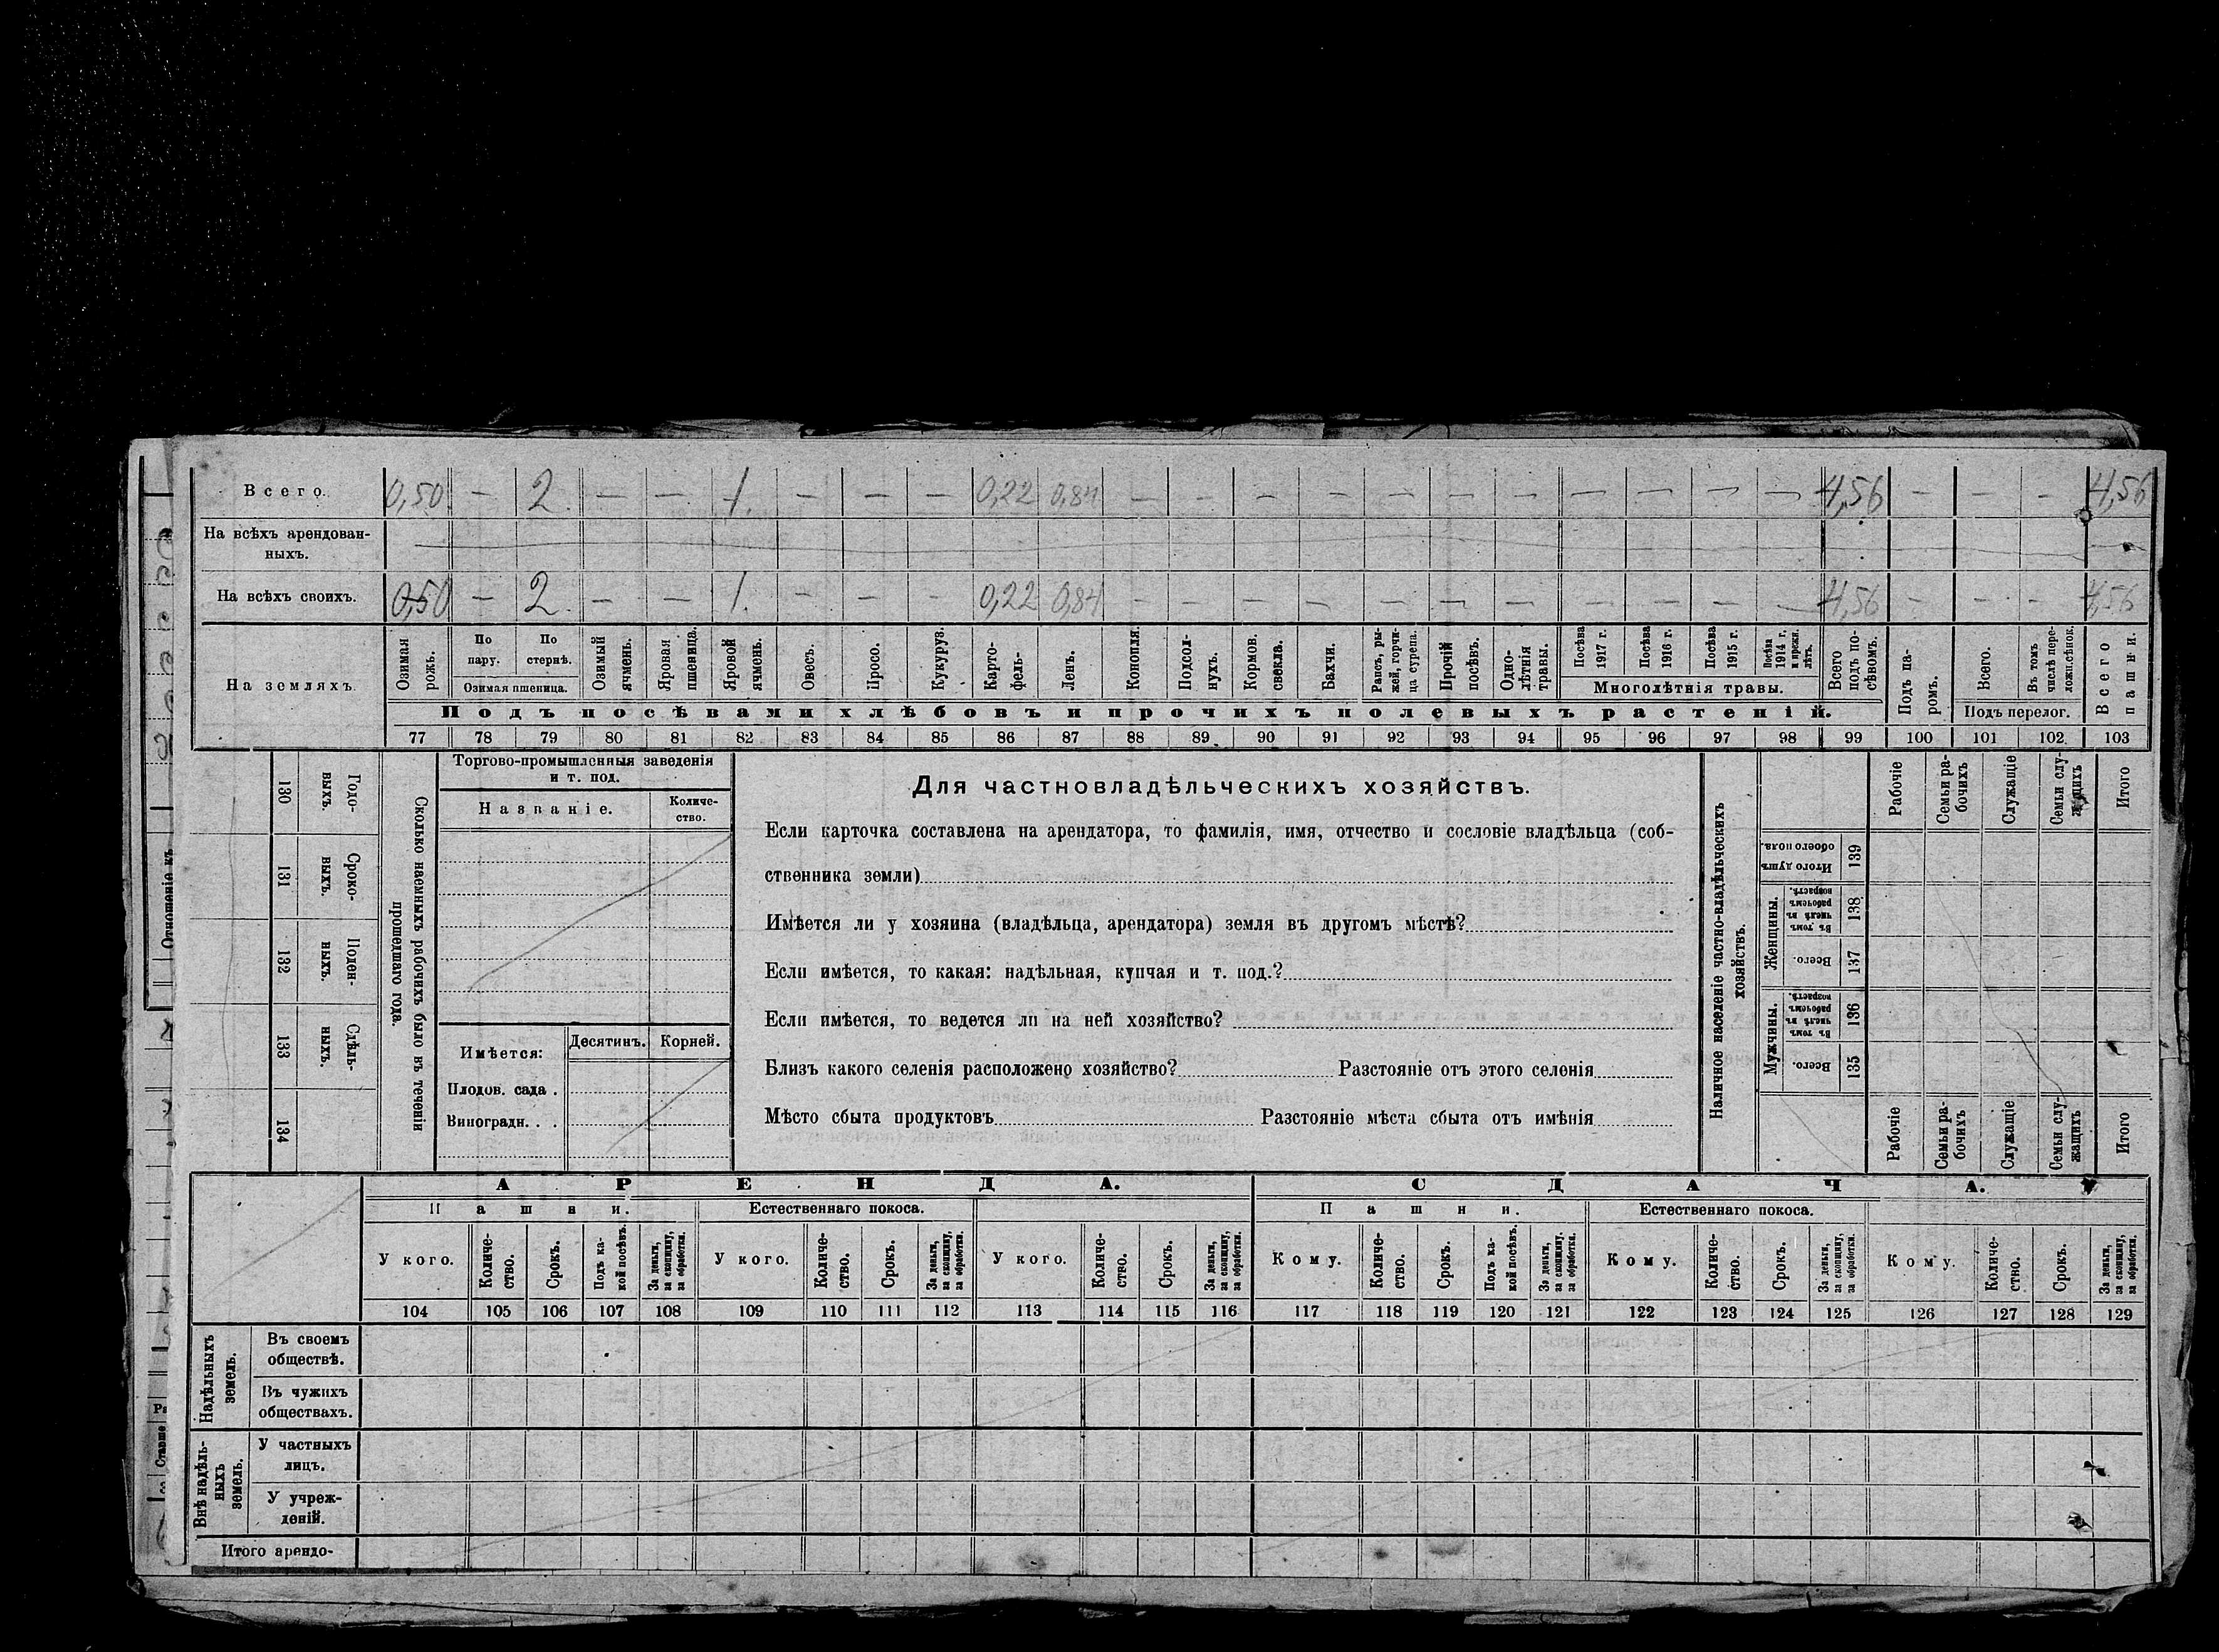 Всего. 0,50 — 2. — — 1. — — — 0,22 0,84 — — — — — — — — — — — 4,56 — — — 4,56
На всѣхъ арендован-
ныхъ.
На всѣхъ своихъ. 0,50 — 2. — — 1. — — — 0,22 0,84 — — — — — — — — — — — 4,56 — — — 4,56
На земляхъ.
Озимая рожь.
По пару.
По стернѣ.
Озимая пшеница.
Озимый ячмень.
Яровая пшеница.
Яровой ячмень.
Овесъ.
Просо.
Кукуруз.
Карто-
фель.
Ленъ.
Конопля.
Подсол-
нухъ.
Кормов. свекла.
Бахчи.
Рапсъ, ры-
жей, горчи-
ца сурепа.
Прочій посѣвъ.
Одно-
лѣтнія травы.
Посѣва 1917 г.
Посѣва 1916 г.
Посѣва 1915 г.
Посѣва 1914 г. и прежн. лѣтъ.
Многолѣтнія травы.
Всего подъ по-
сѣвомъ.
Подъ па-
ромъ.
Всего.
Въ томъ числѣ пере-
ложн.сѣнок.
Подъ перелог.
Всего пашни.
Подъ посѣвами хлѣбовъ и прочихъ полевыхъ растеній.
77 78 79 80 81 82 83 84 85 86 87 88 89 90 91 92 93 94 95 96 97 98 99 100 101 102 103
Отношеніе къ
130 Годо-
выхъ.
131 Сроко-
выхъ.
132 Поден-
ныхъ.
133 Сдѣль-
ныхъ.
134
Сколько наемныхъ рабочихъ было въ теченіи
прошедшаго года.
Торгово-промышленныя заведенія
и т. под.
Названіе.
Количе-
ство.
Имѣется: Десятинъ. Корней.
Плодов. сада .
Виноградн. . .
Для частновладѣльческихъ хозяйствъ.
Если карточка составлена на арендатора, то фамилія, имя, отчество и сословіе владѣльца (соб-
ственника земли)
Имѣется ли у хозяина (владѣльца, арендатора) земля въ другомъ мѣстѣ?
Если имѣется, то какая: надѣльная, купчая и т. под.?
Если имѣется, то ведется ли на ней хозяйство?
Близъ какого селенія расположено хозяйство? Разстояніе отъ этого селенія
Мѣсто сбыта продуктовъ Разстояніе мѣста сбыта отъ имѣнія
Наличное населеніе частно-владѣльческихъ
хозяйствъ.
Рабочіе
Семьи ра-
бочихъ
Служащіе
Семьи слу-
жащихъ
Итого
Итого душъ обоего пола. 139
Женщины.
Въ томъ числѣ въ рабочемъ возрастѣ. 138
Всего. 137
Мужчины.
Въ томъ числѣ въ рабочемъ возрастѣ. 136
Всего. 135
Рабочіе
Семьи ра-
бочихъ
Служащіе
Семьи слу-
жащихъ
Итого
АРЕНДА. СДАЧА.
Пашни. Естественнаго покоса. Пашни. Естественнаго покоса.
У кого.
Количе-
ство.
Срокъ.
Подъ ка-
кой посѣвъ.
За деньги, за скопщину, за обработки.
У кого.
Количе-
ство.
Срокъ.
За деньги, за скопщину, за обработки.
У кого.
Количе-
ство.
Срокъ.
За деньги, за скопщину, за обработки.
Кому.
Количе-
ство.
Срокъ.
Подъ ка-
кой посѣвъ.
За деньги, за скопщину, за обработки.
Кому.
Количе-
ство.
Срокъ.
За деньги, за скопщину, за обработки.
Кому.
Количе-
ство.
Срокъ.
За деньги, за скопщину, за обработки.
104 105 106 107 108 109 110 111 112 113 114 115 116 117 118 119 120 121 122 123 124 125 126 127 128 129
Надѣльныхъ
земель.
Въ своемъ
обществѣ.
Въ чужихъ
обществахъ.
Внѣ надѣль-
ныхъ
земель.
У частныхъ
лицъ.
У учреж-
деній.
Итого арендо-
Старше